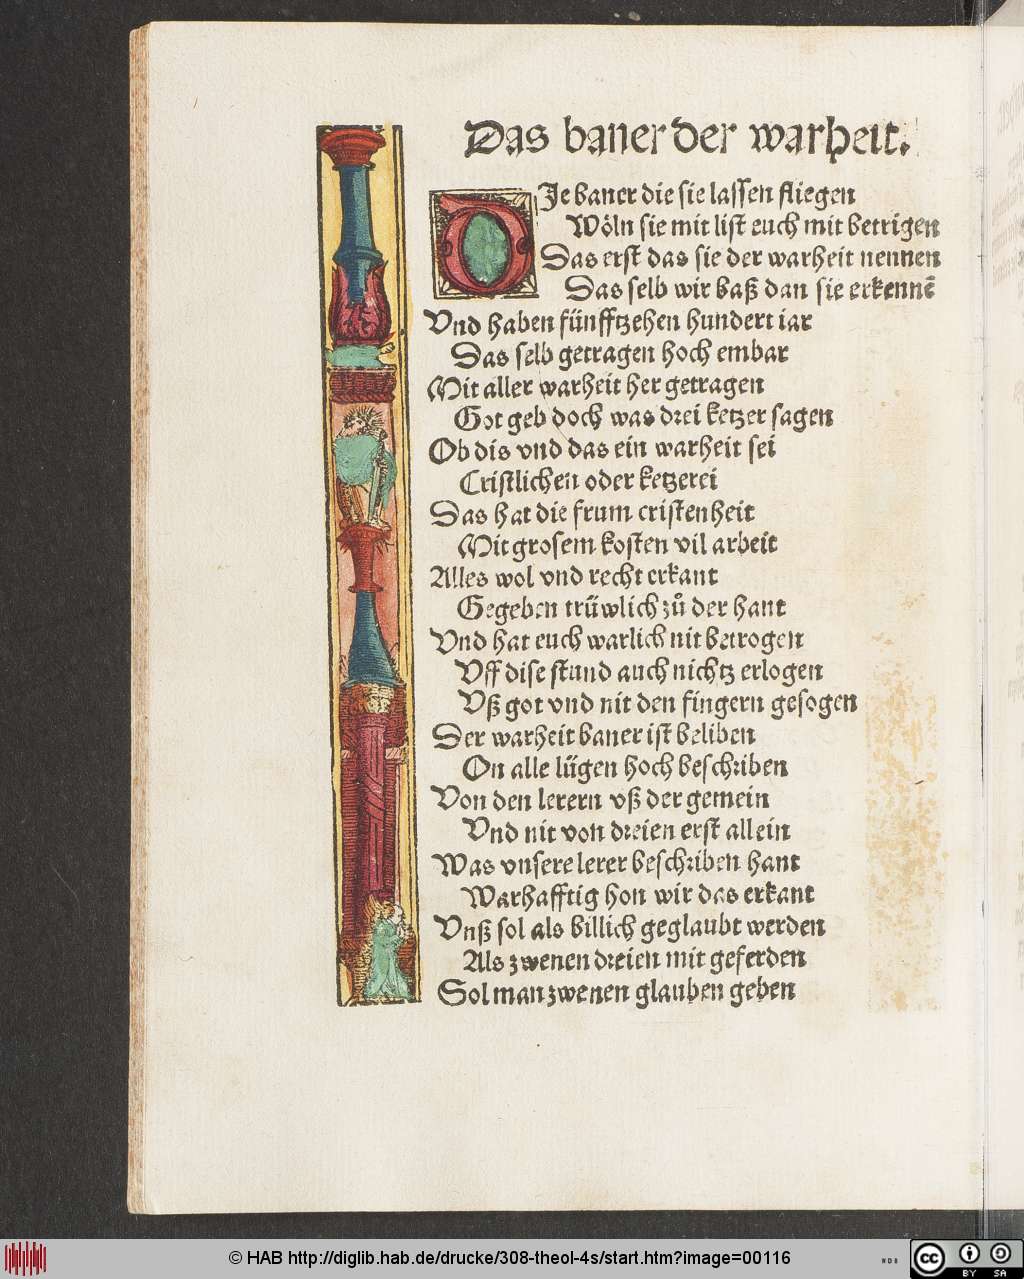 Das baner der warheit.
DIe baner die sie lassen fliegen
Wöln sie mit list euch mit betrigen
Das erst das sie der warheit nennen
Das selb wir baß dan sie erkennē
Vnd haben fünfftzehen hundert iar
Das selb getragen hoch embar
Mit aller warheit her getragen
Got geb doch was drei ketzer sagen
Ob dis vnd das ein warheit sei
Cristlichen oder ketzerei
Das hat die frum cristenheit
Mit grosem kosten vil arbeit
Alles wol vnd recht erkant
Gegeben trüwlich zů der hant
Vnd hat euch warlich nit betrogen
Vff dise stund auch nichtz erlogen
Vß got vnd nit den fingern gesogen
Der warheit baner ist beliben
On alle lügen hoch beschriben
Von den lerern vß der gemein
Vnd nit von dreien erst allein
Was vnsere lerer beschriben hant
Warhafftig hon wir das erkant
Vnß sol als billich geglaubt werden
Als zwenen dreien mit geferden
Sol man zwenen glauben geben
© HAB http://diglib.hab.de/drucke/308-theol-4s/start.htm?image=00116
WDB
cc BY SA